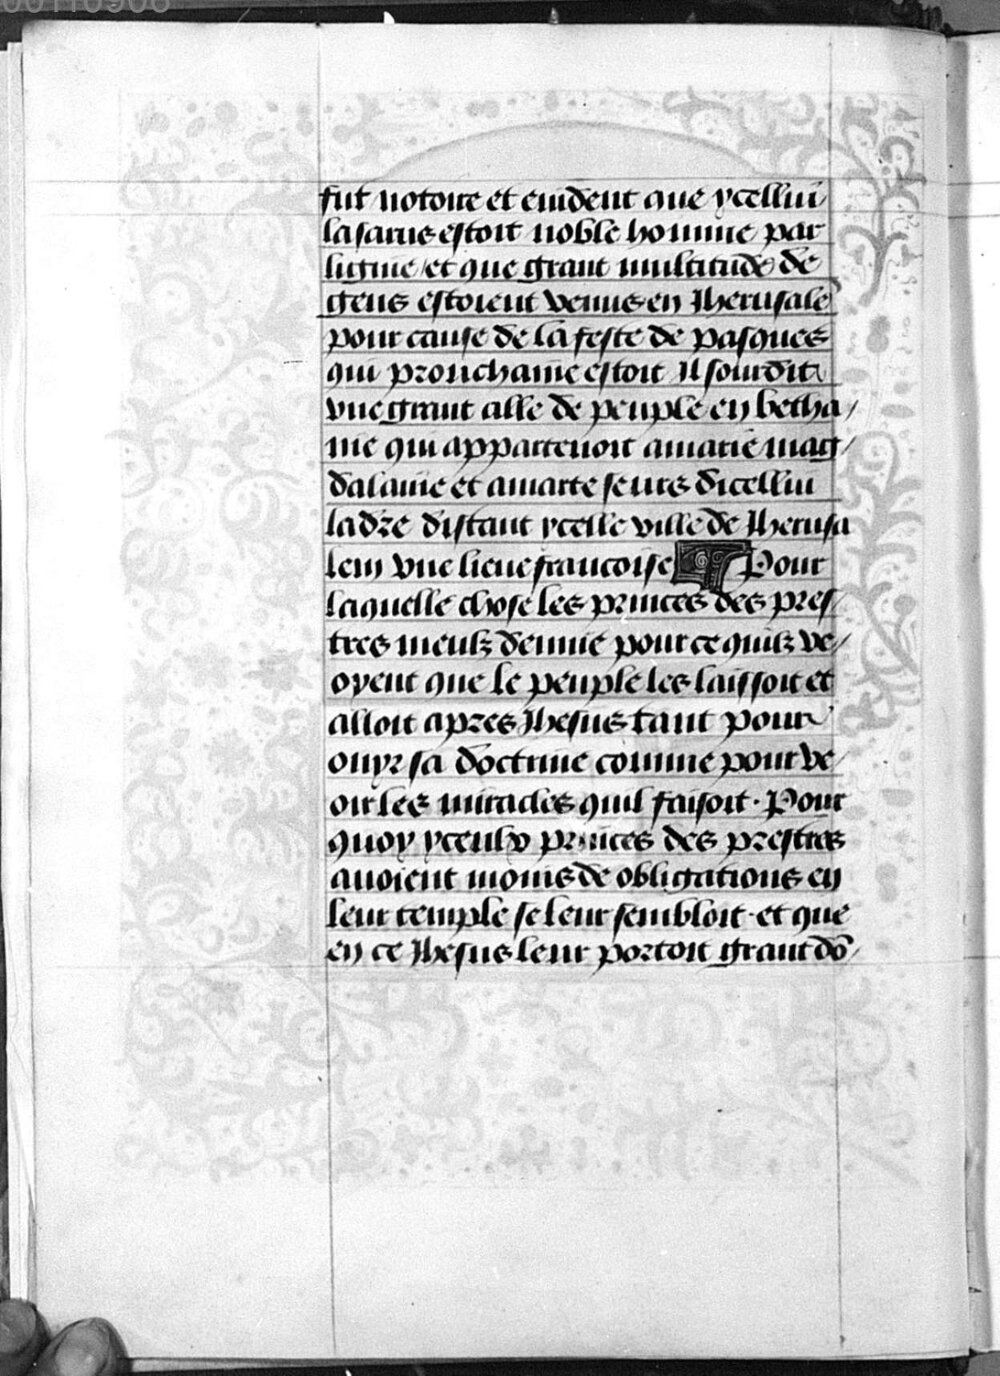 fut notoire et euident que ycelluy
lasarus estoit noble homme par
lignie et que grant multitude de
gens estoient venus en Jherusalē
pour cause de la feste de pasques
qui prouchaine estoit Il sourdit
vne grant alle de peuple en betha
nie qui appartenoit a marie mag
dalaine et a marte seurs dicelluy
ladre distant ycelle ville de Jherusa
lem vne lieue francoise ¶ Pour
laquelle chose les princes des pres
tres meuz denuie pour ce quilz ve
oyent que le peuple les laissoit et
alloit apres Jhesus tant pour
ouyr sa doctrine comme pour ve
oir les miracles quil faisoit. Pour
quoy yceulx princes des prestres
auoient moins de obligations en
leur temple se leur sembloit. et que
en ce Jhesus leur portoit grant dō